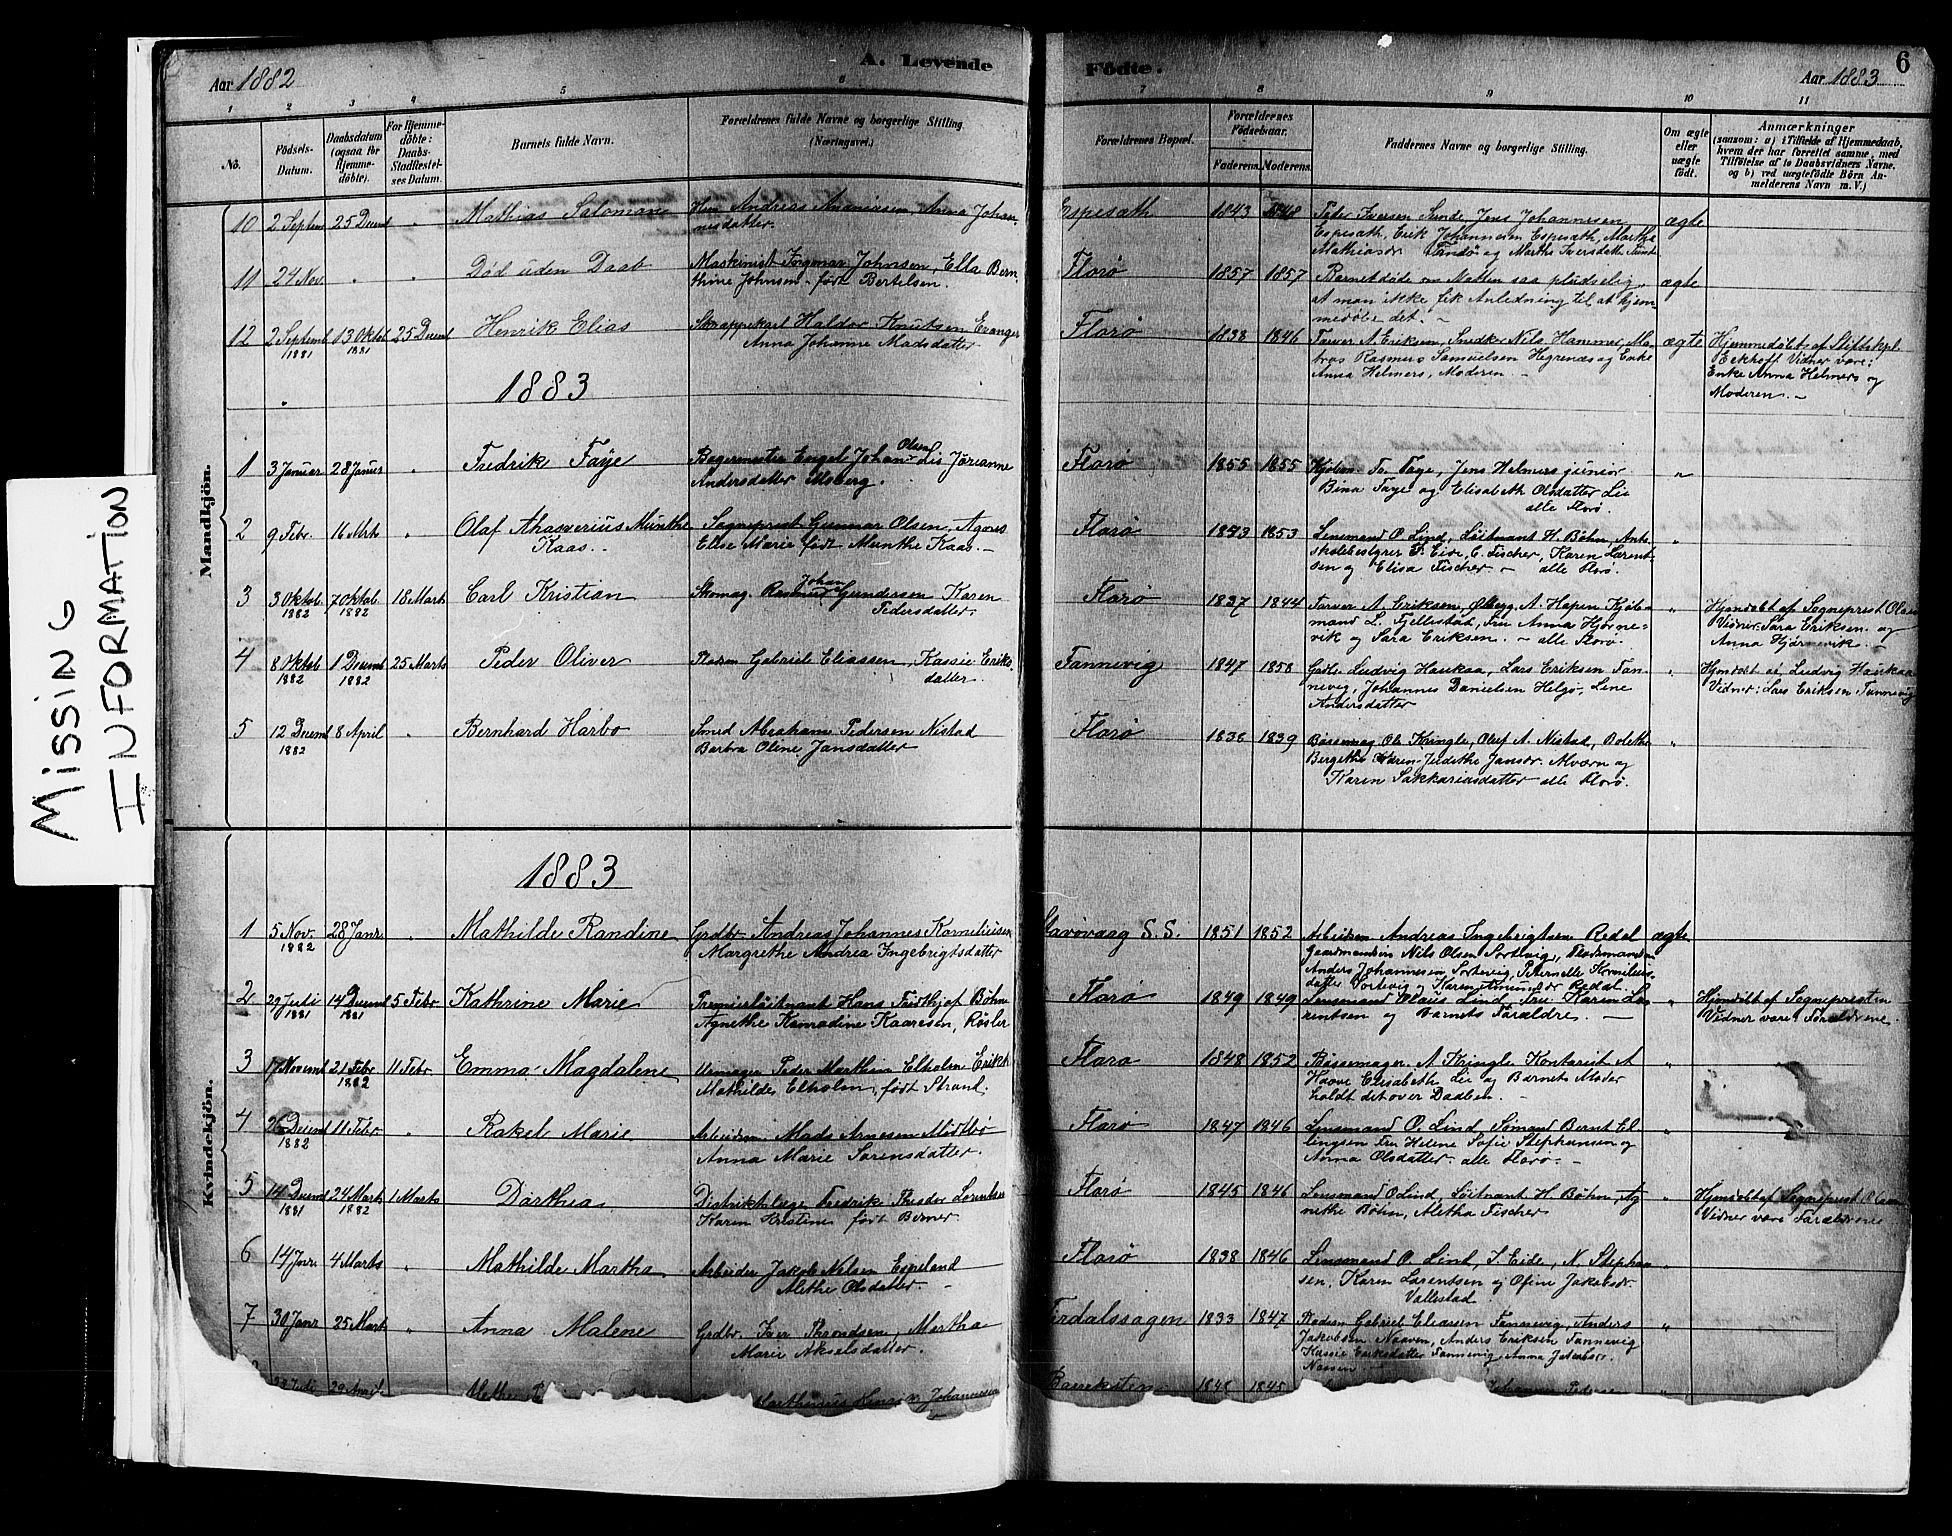 MISSING
INFORMATION
Aar 1882
A. Levende
Födte.
6
Aar 1883
1 2 3 4 5 6 7 8 9 10 11
No.
Födsels-
Datum.
Daabsdatum
(ogsaa for
Hjemme-
döbte).
For Hjemme-
döbte:
Daabs-
Stadfæstel-
ses Datum.
Barnets fulde Navn.
Forældrenes fulde Navne og borgerlige Stilling
(Næringsvei.)
Forældrenes Bopæl.
Forældrenes
Födselsaar.
Faderens. Moderens.
Faddernes Navne og borgerlige Stilling.
Om ægte
eller
uægte
födt.
Anmærkninger
(saasom: a) i Tilfælde af Hjemmedaab,
hvem der har forrettet samme, med
Tilföielse af to Daabsvidners Navne,
og b) ved uægtefödte Börn An-
melderens Navn m. V.)
Mandkjön.
10 2 Septem 25 Decemb " Mathias Salomon
Andreas Ananiasen, Anna Johan-
nesdatter.
Espesæth 1843 1848
Peder Iversen Sunde, Jens Johannesen
Espesæth, Erik Johannesen Espesæth, Marthe
Mathiasdr Tandö og Marthe Iversdatter Sunde
ægte
11 24 Nov. " " Död uden Daab
Maskinist Ingemar Johnsen, Ella Bern-
thine Johnsen født Bertelsen.
Florö 1857 1857
Barnet døde om Natten saa pludselig
at man ikke fik Anledning til at hjem-
medøbe det. -
ægte
12 2 Septemb 1881 13 Oktob 1881 25 Decemb Henrik Elias
Skrappekarl Haldor Knutsen Evanger
Anna Johanne Madsdatter
Florö 1838 1846
Farver A. Eriksen, Snedker Nils Hammer, Ma-
tros Rasmus Samuelsen Hegrenæs og Enke
Anna Helmers, Moderen -
ægte
Hjemmedøbt af Stiftskpl.
Eckhoft Vidner vare:
Enke Anna Helmers og
Moderen. -
1883
1 3 Januar 28 Januar " Fredrik Faye
Bagermester Engel Johan Olsen Lis Jörianne
Andersdatter Moberg.
Florö 1855 1855
Kjøbm. Fr. Faye, Jens Helmers junior
Bina Faye og Elisabeth Olsdatter Lie
alle Florö
"
2 9 Febr. 16 Mrts " Olaf Ahasverius Munthe
Kaas. -
Sogneprest Gunnar Olsen, Agnes
Elise Marie født Munthe Kaas. -
Florö 1843 1853
Lensmand O. Lind, Löitnant H. Bøhn, Amts-
skolebestyrer F. Eide, C. Fischer, Karen Lorent-
sen og Elisa Fischer. - alle Florö.
"
3 3 Oktob 1882 7 Oktob 1882 18 Marts Carl Kristian
Skomag. Rasmus Johan Gundersen Karen
Pedersdatter.
Florö 1837 1844
Farver A. Eriksen, A. Hopen Kjøb-
mand L. Fjellestad, Fru Anna Hjørne-
vik og Sara Eriksen. - alle Florö.
"
Hjemdøbt af Sogneprest Olsen
Vidner: Sara Eriksen og
Anna Hjørnevik. -
4 8 Oktob 1882 1 Decemb 1882 25 Marts Peder Oliver
Pladsm Gabriel Eliassen, Kassie Eriks-
datter.
Fannevig 1847 1858
Grdbr. Ludvig Haukaa, Lars Eriksen Fan-
nevig, Johannes Danielsen Helgö, Lene
Andersdatter
"
Hjemdøbt af Ludvig Haukaa
Vidner: Lars Eriksen Fannevig
5 12 Decemb 1882 8 April " Bernhard Harbo
Smed Abraham Pedersen Nistad
Barbra Oline Jansdatter
Florö 1838 1839
Bøssemag Ole Kringle, Oluf A. Nistad, Bolethe
Bergethe Karen Judithe Jansdr. Alværn og
Karen Sakkariasdatter alle Florö.
"
Kvindekjön.
1883
1 5 Nov. 1882 28 Janr. " Mathilde Randine
Grdbr Andreas Johannes Korneliusen
Margrethe Andrea Ingebrigtsdatter
Stavøvaag S.S. 1851 1852
Arbeidsm Andreas Ingebrigtsen Redal
Gaardmændsn Nils Olsen Sortevig, Pladsmandsn
Anders Johannesen Sortevig, Peternelle Kornelius-
datter Sortevig og Karen Redal.
ægte
2 29 Juli 1881 14 Decemb 1881 5 Febr Kathrine Marie
Premierlöitnant Hans Fridthjof Bøhn
Agnethe Konradine Kaaresen, Røsler
Florö 1849 1849
Lensmand Olaus Lind, Fru Karen Lo-
rentsen og Barnets Forældre. -
"
Hjemdøbt af Sognepresten
Vidner vare Forældrene.
3 17 Novemb 21 Febr 1882 11 Febr Emma Magdalene
Urmager Peder Marthin Elholm Erikke
Mathilde Elholm, født Strand.
Florö 1848 1852
Bøssemager A. Kringle, Kontorist A
Haave Elisabeth Lie og Barnets Moder
holdt det over Daaben. -
"
4 26 Decemb 1882 11 Febr " Rakel Marie
Arbeidsm Mads Arnesen Midtbö
Anna Marie Sörensdatter.
Florö 1847 1846
Lensmand O. Lind, Sømand Bernt El-
lingsen Fru Helene Sofie Stephansen og
Anna Olsdatter. alle Florö. -
"
5 14 Decemb 1881 24 Marts 1882 1 Marts Dorthea
Distriktslæge Fredrik Theodor Lorentsen
Karen Kristine født Berner.
Florö 1845 1846
Lensmand O Lind, Löitnant H. Bøhn, Ag-
nethe Bøhn, Aletha Fischer
"
Hjemdøbt af Sogneprest Olsen
Vidner vare Forældrene
6 14 Janr. 4 Marts " Mathilde Martha
Arbeider Jakob Nilsen Espeland
Alethe Olsdatter. -
Florö 1838 1846
Lensmand O. Lind, S. Eide, N. Stephan-
sen, Karen Lorentsen og Ofine Jakobsdr.
Vallestad
"
7 30 Janr 25 Marts " Anna Malene
Grdbr. Iver Throndsen, Martha
Marie Akselsdatter.
Erdalssagen 1833 1847
Pladsm Gabriel Eliasen Fannevig, Anders
Jakobsen Naaven, Anders Eriksen Fannevig
Kassie Eriksdatter Fannevig Anna Jakobsdr.
"
Juli 29 April Alethe
Marthinus Johannesen
Bareksten 1848 1845
Johannes Pedersen
"